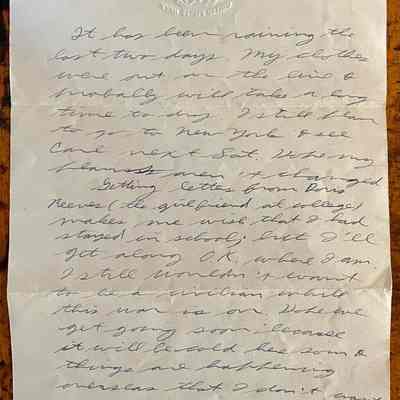 It has been raining the
last two days. My clothes
were out on the line &
probably will take a long
time to dry. I still plan
to go to New York & see
Carl next Sat. Hope my
plans aren't changed
Getting letters from Doris
Reeves (the girlfriend at college)
makes me wish that I had
stayed in school; but I'll
get along O.K. where I am.
I still wouldn't want
to be a civilian while
this war is on. Hope we
get going soon because
it will be cold here soon &
things are happening
overseas that I don't